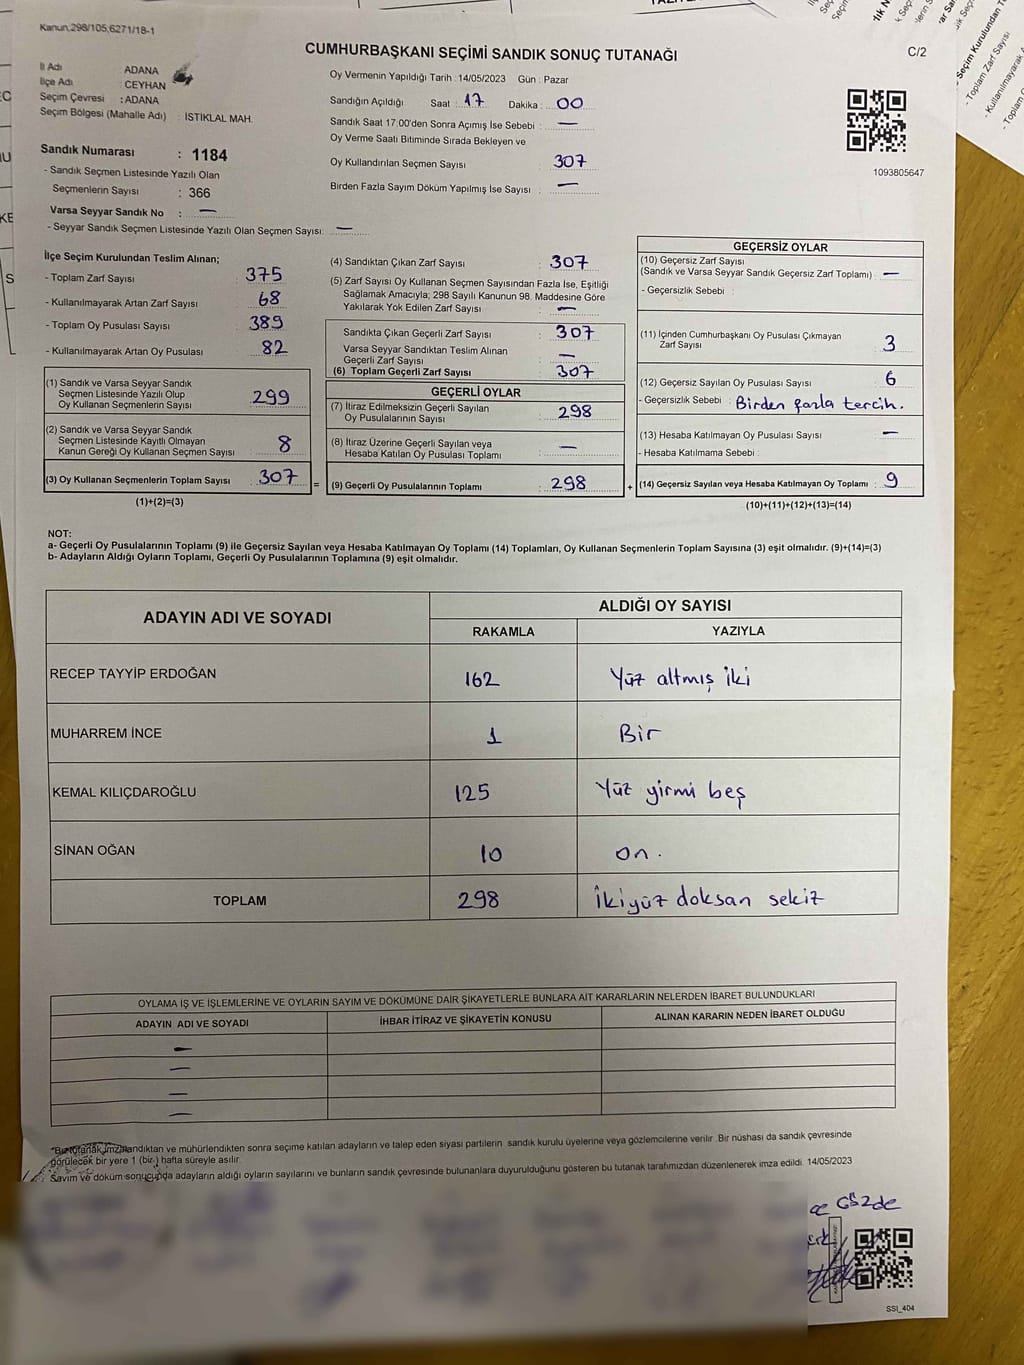 Kanun;298/105;6271/18-1
CUMHURBAŞKANI SEÇİMİ SANDIK SONUÇ TUTANAĞI
C/2
İl Adı : ADANA
İlçe Adı : CEYHAN
Seçim Çevresi : ADANA
Seçim Bölgesi (Mahalle Adı) : ISTIKLAL MAH.
Oy Vermenin Yapıldığı Tarih :14/05/2023 Gün : Pazar
Sandığın Açıldığı Saat : 17 Dakika : 00
Sandık Saat 17:00'den Sonra Açımış İse Sebebi : —
Oy Verme Saati Bitiminde Sırada Bekleyen ve
Oy Kullandırılan Seçmen Sayısı 307
Birden Fazla Sayım Döküm Yapılmış İse Sayısı : —
1093805647
Sandık Numarası : 1184
- Sandık Seçmen Listesinde Yazılı Olan
Seçmenlerin Sayısı : 366
Varsa Seyyar Sandık No : —
- Seyyar Sandık Seçmen Listesinde Yazılı Olan Seçmen Sayısı: —
İlçe Seçim Kurulundan Teslim Alınan;
- Toplam Zarf Sayısı : 375
- Kullanılmayarak Artan Zarf Sayısı : 68
- Toplam Oy Pusulası Sayısı : 389
- Kullanılmayarak Artan Oy Pusulası : 82
(1) Sandık ve Varsa Seyyar Sandık
Seçmen Listesinde Yazılı Olup
Oy Kullanan Seçmenlerin Sayısı : 299
(2) Sandık ve Varsa Seyyar Sandık
Seçmen Listesinde Kayıtlı Olmayan
Kanun Gereği Oy Kullanan Seçmen Sayısı : 8
(3) Oy Kullanan Seçmenlerin Toplam Sayısı : 307
(1)+(2)=(3)
(4) Sandıktan Çıkan Zarf Sayısı : 307
(5) Zarf Sayısı Oy Kullanan Seçmen Sayısından Fazla İse, Eşitliği
Sağlamak Amacıyla; 298 Sayılı Kanunun 98. Maddesine Göre
Yakılarak Yok Edilen Zarf Sayısı : —
Sandıkta Çıkan Geçerli Zarf Sayısı : 307
Varsa Seyyar Sandıktan Teslim Alınan
Geçerli Zarf Sayısı : —
(6) Toplam Geçerli Zarf Sayısı : 307
GEÇERLİ OYLAR
(7) İtiraz Edilmeksizin Geçerli Sayılan
Oy Pusulalarının Sayısı : 298
(8) İtiraz Üzerine Geçerli Sayılan veya
Hesaba Katılan Oy Pusulası Toplamı : —
= (9) Geçerli Oy Pusulalarının Toplamı : 298
GEÇERSİZ OYLAR
(10) Geçersiz Zarf Sayısı
(Sandık ve Varsa Seyyar Sandık Geçersiz Zarf Toplamı) : —
- Geçersizlik Sebebi :
(11) İçinden Cumhurbaşkanı Oy Pusulası Çıkmayan
Zarf Sayısı : 3
(12) Geçersiz Sayılan Oy Pusulası Sayısı : 6
- Geçersizlik Sebebi : Birden fazla tercih.
(13) Hesaba Katılmayan Oy Pusulası Sayısı : —
- Hesaba Katılmama Sebebi :
+ (14) Geçersiz Sayılan veya Hesaba Katılmayan Oy Toplamı : 9
(10)+(11)+(12)+(13)=(14)
NOT:
a- Geçerli Oy Pusulalarının Toplamı (9) ile Geçersiz Sayılan veya Hesaba Katılmayan Oy Toplamı (14) Toplamları, Oy Kullanan Seçmenlerin Toplam Sayısına (3) eşit olmalıdır. (9)+(14)=(3)
b- Adayların Aldığı Oyların Toplamı, Geçerli Oy Pusulalarının Toplamına (9) eşit olmalıdır.
ADAYIN ADI VE SOYADI
ALDIĞI OY SAYISI
RAKAMLA YAZIYLA
RECEP TAYYİP ERDOĞAN 162 Yüz altmış iki
MUHARREM İNCE 1 Bir
KEMAL KILIÇDAROĞLU 125 Yüz yirmi beş
SİNAN OĞAN 10 on.
TOPLAM 298 İkiyüz doksan sekiz
OYLAMA İŞ VE İŞLEMLERİNE VE OYLARIN SAYIM VE DÖKÜMÜNE DAİR ŞİKAYETLERLE BUNLARA AİT KARARLARIN NELERDEN İBARET BULUNDUKLARI
ADAYIN ADI VE SOYADI İHBAR İTİRAZ VE ŞİKAYETİN KONUSU ALINAN KARARIN NEDEN İBARET OLDUĞU
—
—
—
—
*Bu tutanak imzalandıktan ve mühürlendikten sonra seçime katılan adayların ve talep eden siyasi partilerin sandık kurulu üyelerine veya gözlemcilerine verilir .Bir nüshası da sandık çevresinde
görülecek bir yere 1 (bir) hafta süreyle asılır.
Sayım ve döküm sonucunda adayların aldığı oyların sayılarını ve bunların sandık çevresinde bulunanlara duyurulduğunu gösteren bu tutanak tarafımızdan düzenlenerek imza edildi. 14/05/2023
SSI_404